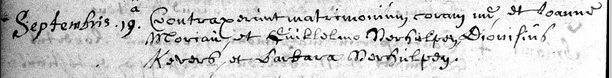 Septembris .19ª. Contraxerunt matrimonium coram me, et Joanne
Moriau, et Guilhelmo Verhulpen, Dionisius
Kevers et Barbara Verhulpen.